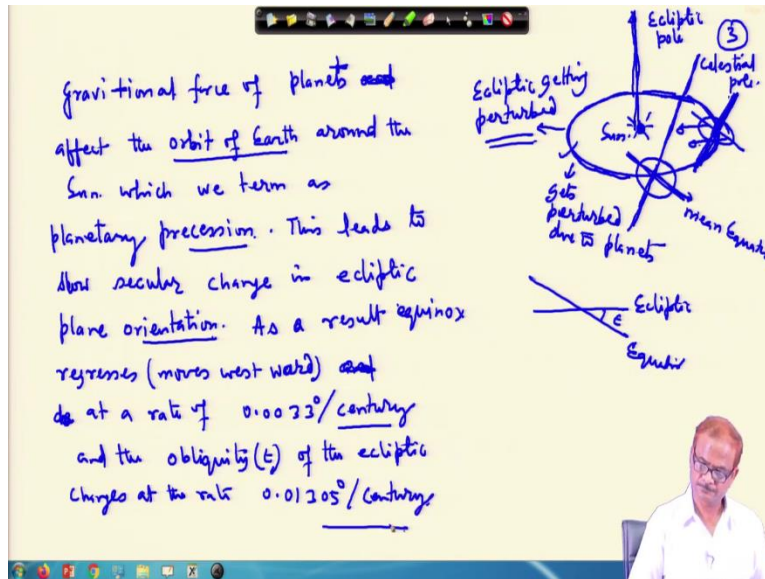 gravitional force of planets
affect the orbit of Earth around the
Sun. which we term as
planetary precession. This leads to
slow secular change in ecliptic
plane orientation. As a result equinox
regresses (moves west ward)
at a rate of 0.0033°/century
and the obliquity (ε) of the ecliptic
changes at the rate 0.01305°/century.
Ecliptic
pole
3
Celestial
pole.
Ecliptic getting
perturbed
Sun.
gets
perturbed
due to planets
mean Equator
Ecliptic
ε
Equator